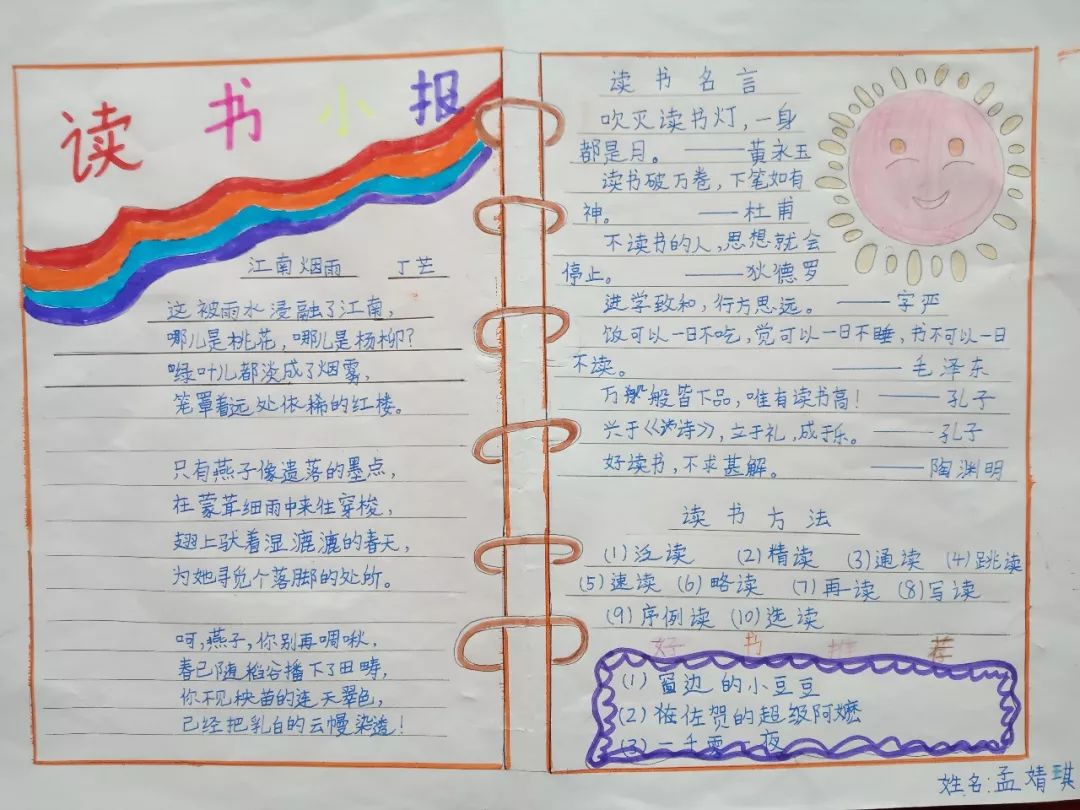 读书小报
江南烟雨 丁芒
这被雨水浸融了江南，
哪儿是桃花，哪儿是杨柳？
嘹叶儿都淡成了烟雾，
笼罩着远处依稀的红楼。
只有燕子像遗落的墨点，
在蒙茸细雨中来住穿梭，
翅上驮着湿漉漉的春天，
为她寻觅个落脚的处所。
呵，燕子，你别再啁啾，
春已随稻谷播下了田畴，
你不见秧苗的连天翠色，
已经把乳白的云幔染透！
读书名言
吹灭读书灯，一身
都是月。 ——黄永玉
读书破万卷，下笔如有
神。 ——杜甫
不读书的人，思想就会
停止。 ——狄德罗
进学致和，行方思远。 ——字严
饭可以一日不吃，觉可以一日不睡，书不可以一日
不读。 ——毛泽东
万般皆下品，唯有读书高！ ——孔子
兴于《诗》，立于礼，成于乐。 ——孔子
好读书，不求甚解。 ——陶渊明
读书方法
(1)泛读 (2)精读 (3)通读 (4)跳读
(5)速读 (6)略读 (7)再读 (8)写读
(9)序例读 (10)选读
好书推荐
(1) 窗边的小豆豆
(2) 佐贺的超级阿嬷
(3) 一千零一夜
姓名：孟婧琪